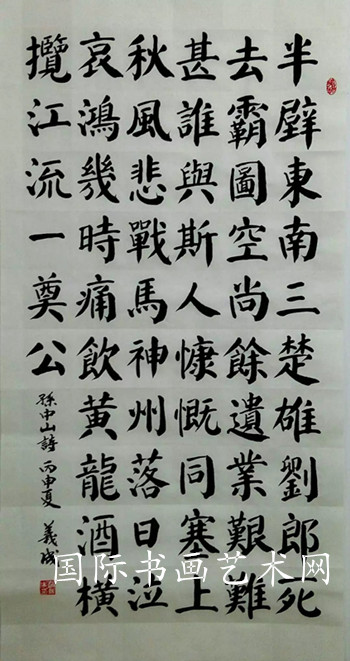 半壁東南三楚雄劉郎死
去霸圖空尚餘遺業艱難
甚誰與斯人慷慨同塞上
秋風悲戰馬神州落日泣
哀鴻幾時痛飲黃龍酒橫
攬江流一奠公
孫中山詩 丙申夏 義成
国际书画艺术网